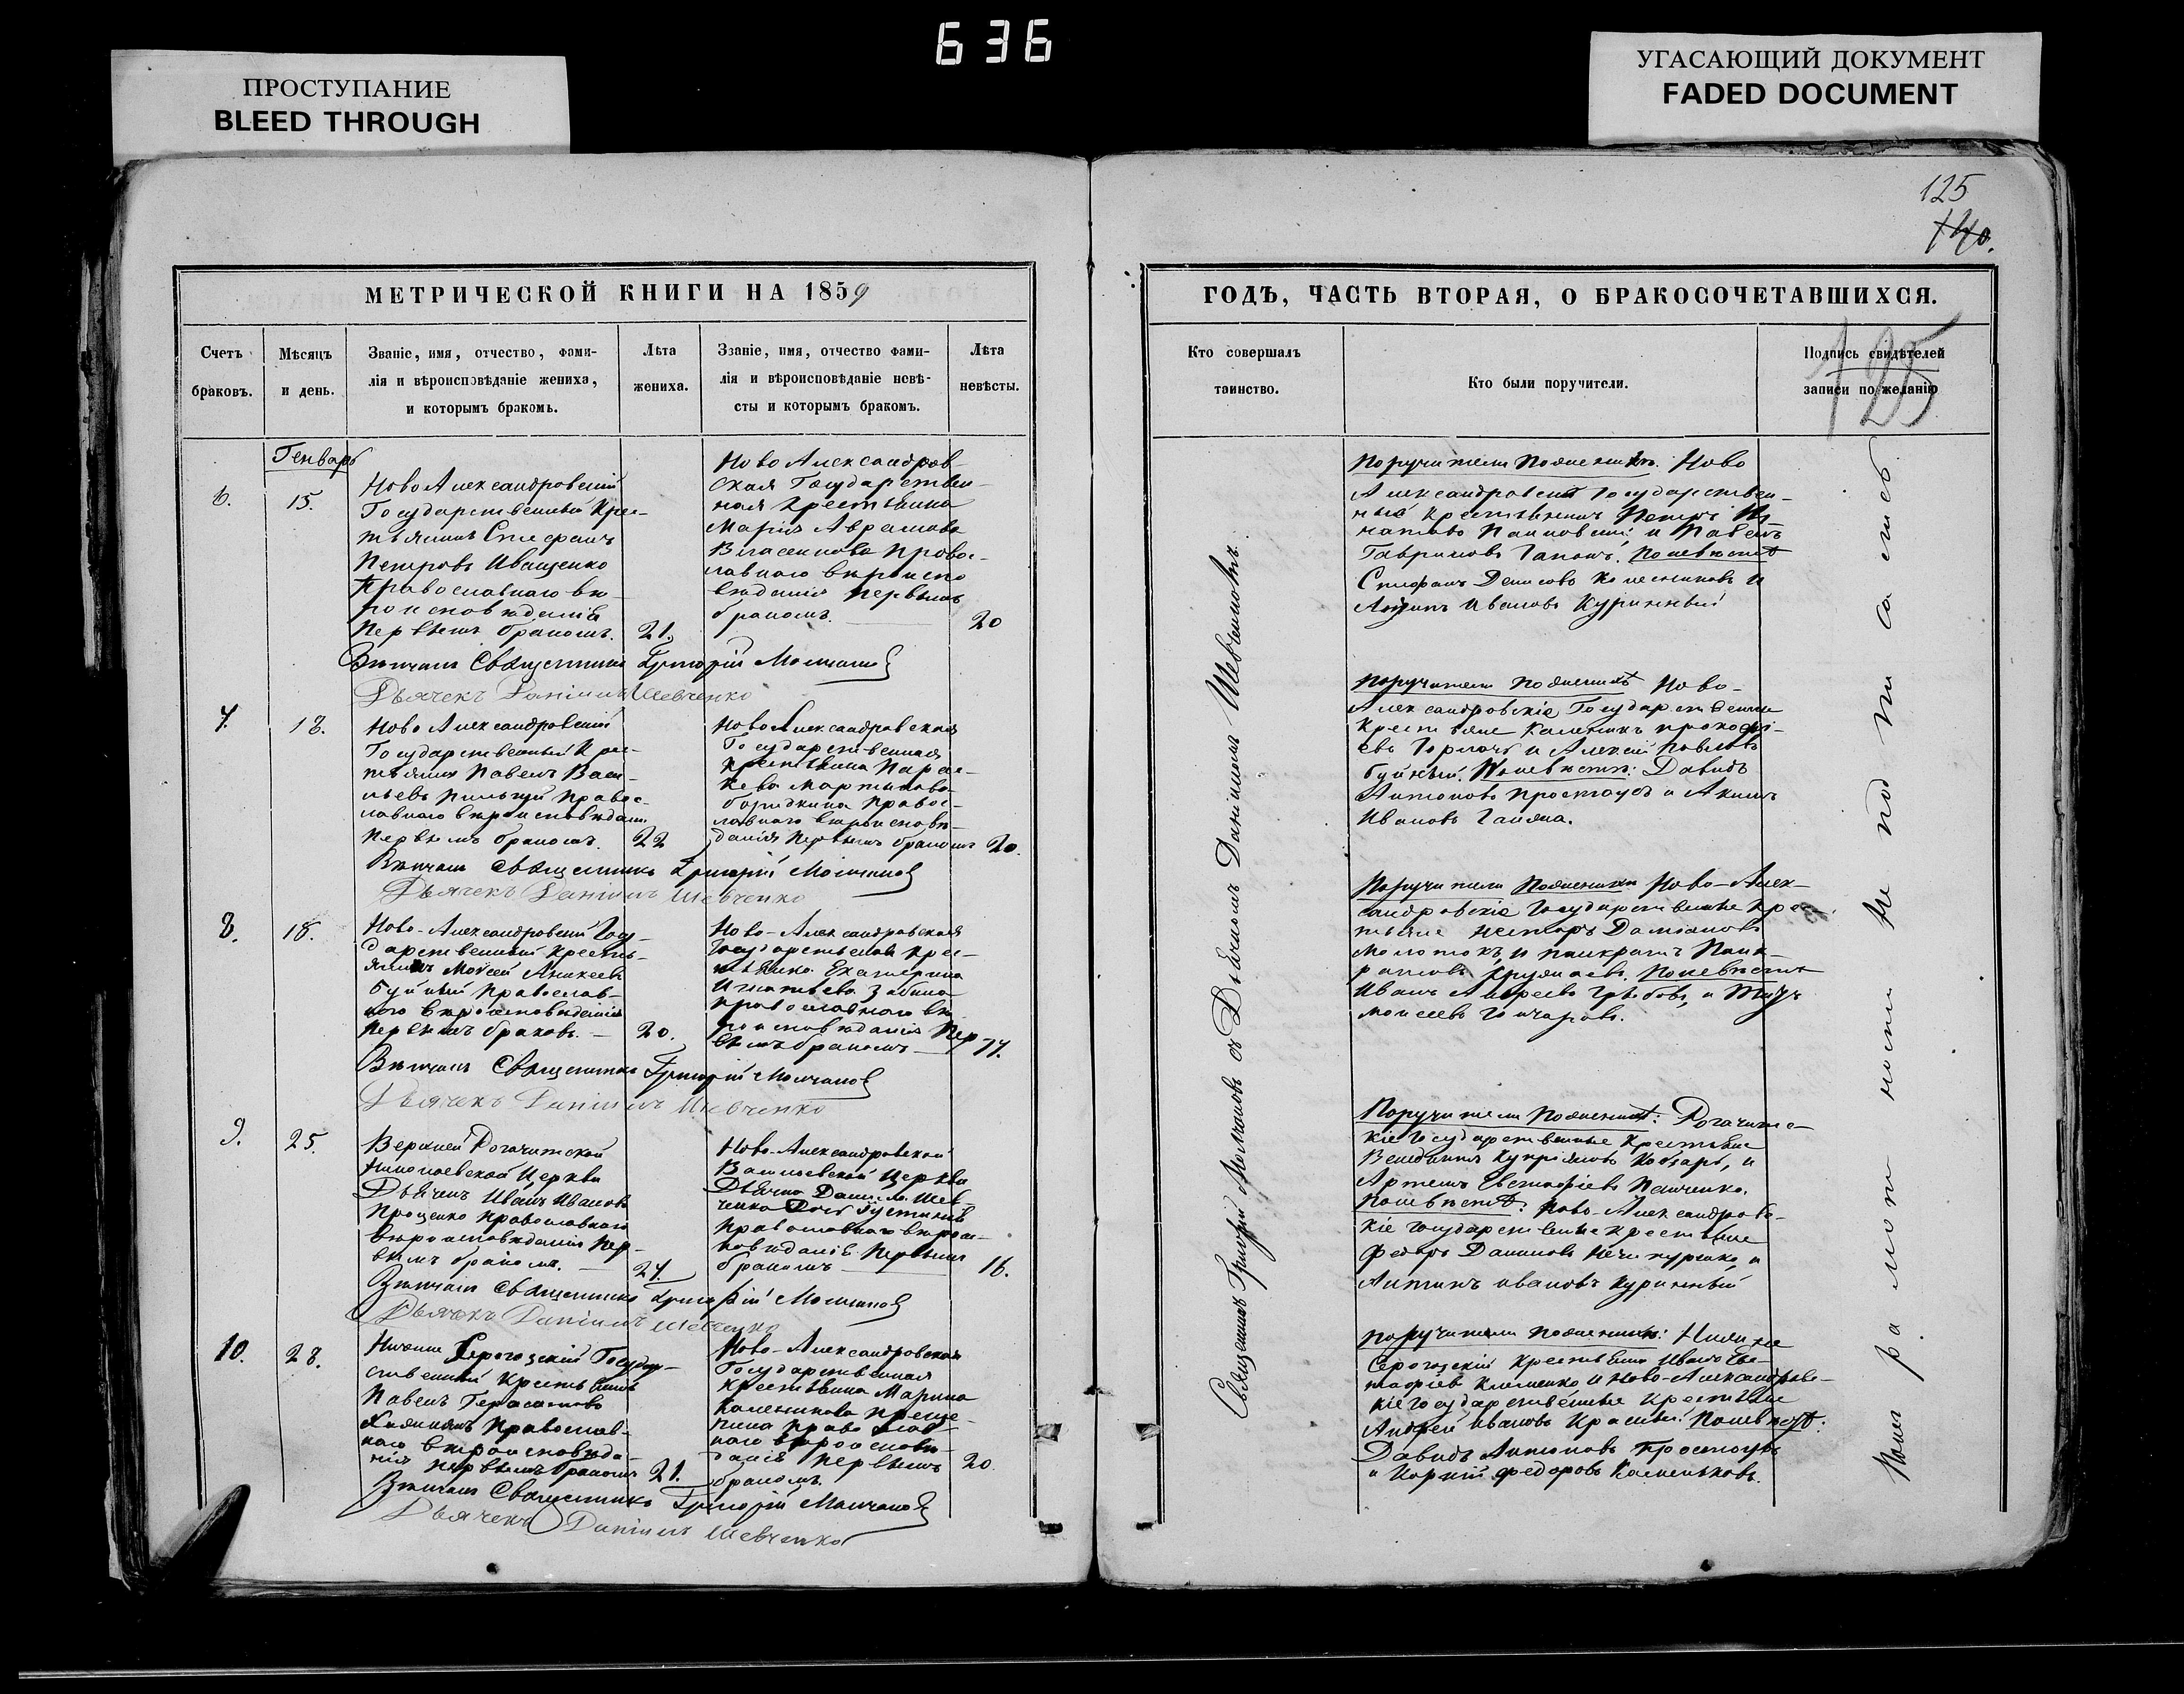 636
ПРОСТУПАНИЕ
BLEED THROUGH
УГАСАЮЩИЙ ДОКУМЕНТ
FADED DOCUMENT
125
140.
МЕТРИЧЕСКОЙ КНИГИ НА 1859
Счетъ браковъ.
Мѣсяцъ и день.
Званіе, имя, отчество, фами-
лія и вѣроисповѣданіе жениха,
и которымъ бракомъ.
Лѣта жениха.
Званіе, имя, отчество фами-
лія и вѣроисповѣданіе невѣ-
сты и которымъ бракомъ.
Лѣта невѣсты.
Генварь
6.
15.
Ново Александровскій
Государственный Крес-
тьянинъ Стефанъ
Петровъ Иващенко
Православнаго вѣ-
роисповѣданія
Первымъ бракомъ.
21.
Ново Александров-
ская Государствен-
ная Крестьянка
Марія Аврамова
Власенкова Правос-
лавнаго вѣроиспо
вѣданія первымъ
бракомъ.
20
Вѣнчалъ Священникъ Григорій Молчановъ
Дьячекъ Даніилъ Шевченко
7.
18.
Ново Александровскій
Государственный Крес-
тьянинъ Павелъ Васи-
льевъ Правос-
лавнаго вѣроисповѣдан.
Первымъ бракомъ.
22
Ново Александровская
Государственная
Крестьянка Парас-
кева Мартинова
Правос-
лавнаго вѣроисповѣ-
данія Первымъ бракомъ
20.
Вѣнчалъ Священникъ Григорій Молчановъ
Дьячекъ Даніилъ Шевченко
8.
18.
Ново-Александровскій Госу-
дарственный Кресть-
янинъ Моисей Алексеевъ
Буйный Православ-
наго вѣроисповѣданія
Первымъ браковъ.
20.
Ново-Александровская
Государственная Крес-
тьянка Екатерина
Игнатьева
православнаго вѣ
роисповѣданія Пер
вымъ бракомъ
17.
Вѣнчалъ Священникъ Григорій Молчановъ
Дьячекъ Даніилъ Шевченко
9.
25.
Верхней Рогачитской
Николаевской Церкви
Дьячекъ Иванъ Ивановъ
Проценко православнаго
вѣроисповѣданія Пер-
вымъ бракомъ.
24.
Ново-Александровской
Васильевской Церкви
Дьячка Даніила Шев
ченка Дочь Іустинія
Православнаго вѣроис-
повѣданія Первымъ
бракомъ
16.
Вѣнчалъ Священникъ Григорій Молчановъ
Дьячекъ Даніилъ Шевченко
10.
28.
Нижне Серогозскій Государ-
ственный Крестьянинъ
Павелъ Герасимовъ
Православ-
наго вѣроисповѣда-
нія первымъ бракомъ
21.
Ново-Александровская
Государственная
Крестьянка Марина
Православ-
наго вѣроисповѣ-
данія Первымъ
бракомъ.
20.
Вѣнчалъ Священникъ Григорій Молчановъ
Дьячекъ Даніилъ Шевченко
ГОДЪ, ЧАСТЬ ВТОРАЯ, О БРАКОСОЧЕТАВШИХСЯ.
Кто совершалъ таинство.
Кто были поручители.
Подпись свидѣтелей записи по желанію
125
Священникъ Григорій Молчановъ съ Дьячкомъ Даніиломъ Шевченкомъ.
Поручители По женихѣ: Ново
Александровскій Государствен-
ный Крестьянинъ Петръ
и Павелъ
Гавриловъ Гапонъ. По невѣстѣ
Стефанъ Денисовъ Колесниковъ и
Ивановъ Куринный
Поручители по женихѣ Ново-
Александровскіе Государственные
Крестьяне Калиникъ Прокофі-
евъ и Алексій Павловъ
Буйный. По невѣстѣ: Давидъ
Антоновъ Простоубъ и Акимъ
Ивановъ
Поручители По женихѣ Ново-Алек-
сандровскіе Государственные Крес-
тьяне Несторъ Даміановъ
Молотокъ, и Панкратъ Панк-
ратовъ По невѣстѣ
Иванъ Андреевъ и
Моисеевъ Гончаровъ.
Поручители По женихѣ: Рогачитс-
кіе Государственные Крестьяне
Венедиктъ Купріяновъ Кобзарь, и
Артемъ Евстафіевъ Панченко.
По невѣстѣ: Ново-Александровс-
кіе Государственные Крестьяне
Федоръ Даниловъ Нечипуренко, и
Антинъ Ивановъ Куринный
Поручители По женихѣ: Нижне
Серогозскій Крестьянинъ Иванъ Евс
тафіевъ Клименко и Ново-Александровс-
кіе Государственные Крестьяне
Андрей Ивановъ По невѣстѣ:
Давидъ Антоновъ Простоубъ
и Корній Федоровъ